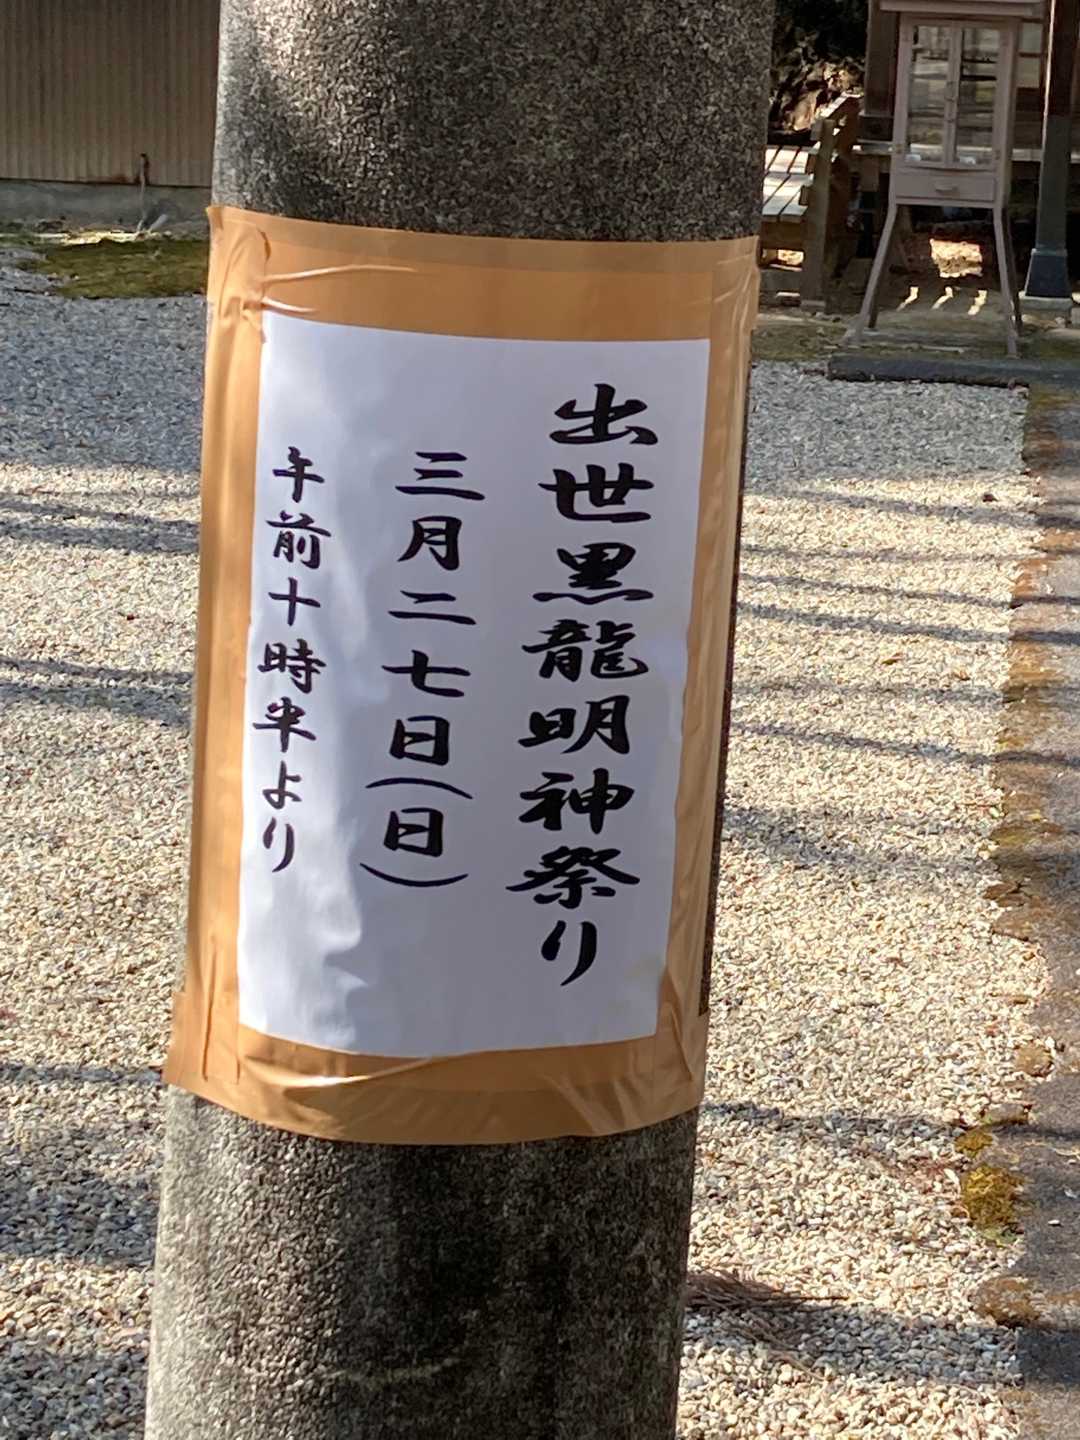 出世黒龍明神祭り
三月二七日(日)
午前十時半より